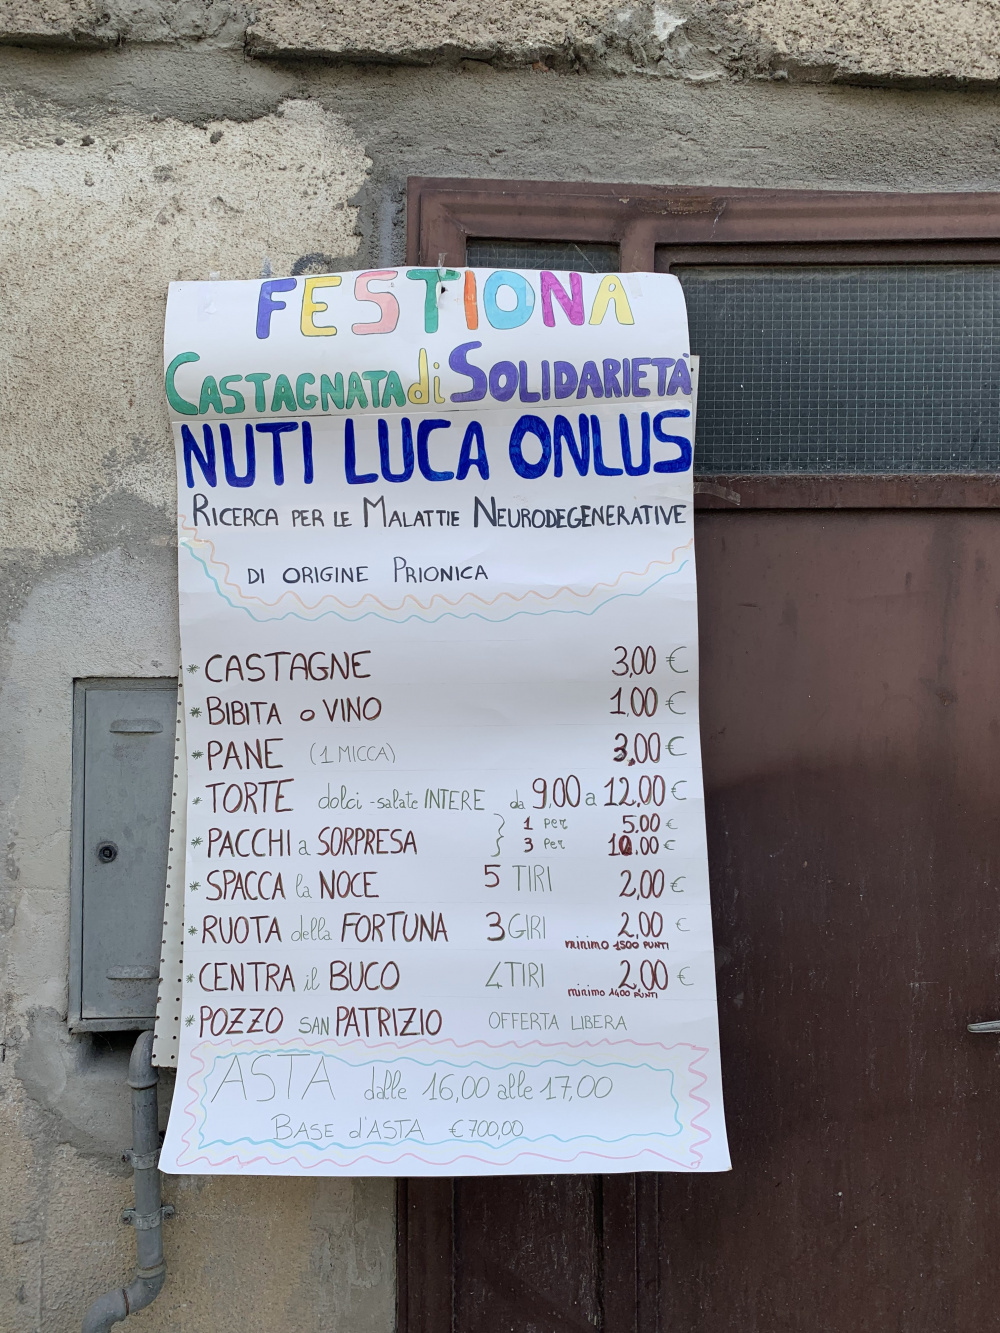 FESTIONA
CASTAGNATA di SOLIDARIETÀ
NUTI LUCA ONLUS
RICERCA PER LE MALATTIE NEURODEGENERATIVE
DI ORIGINE PRIONICA
* CASTAGNE 3,00 €
* BIBITA O VINO 1,00 €
* PANE (1 MICCA) 3,00 €
* TORTE dolci - salate INTERE da 9,00 a 12,00 €
* PACCHI a SORPRESA } 1 per 5.00 €
3 per 10.00 €
* SPACCA la NOCE 5 TIRI 2,00 €
* RUOTA della FORTUNA 3 GIRI 2,00 €
minimo 1500 PUNTI
* CENTRA il BUCO 4 TIRI 2,00 €
minimo 1400 PUNTI
* POZZO SAN PATRIZIO OFFERTA LIBERA
ASTA dalle 16,00 alle 17,00
BASE d'ASTA € 700,00